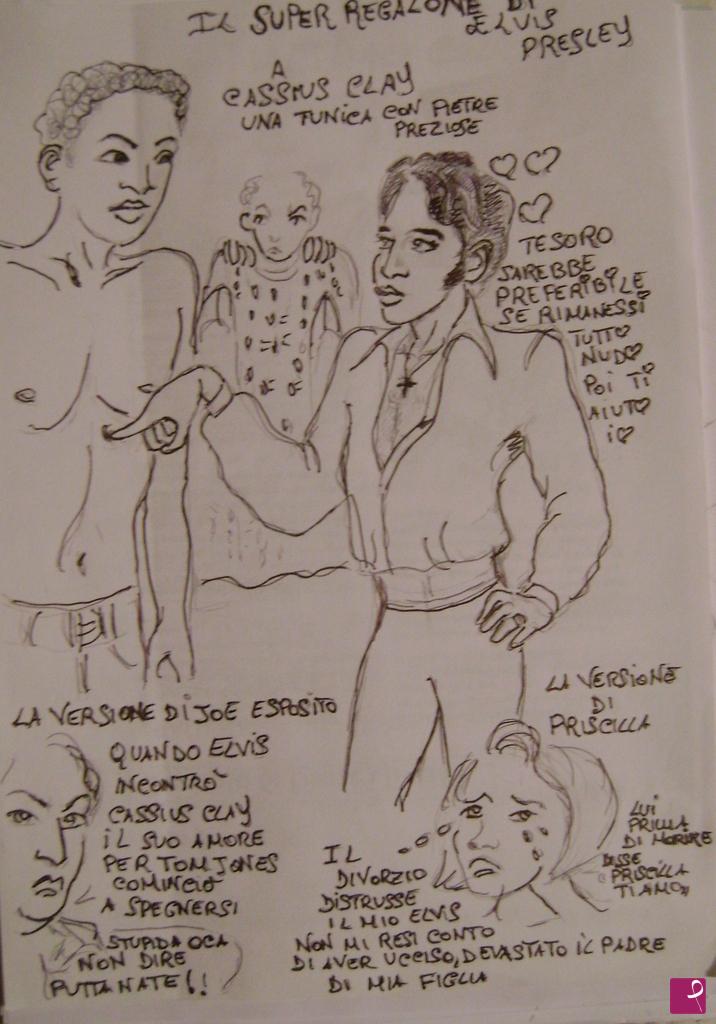 IL SUPER REGALONE DI
ELVIS
PRESLEY
A
CASSIUS CLAY
UNA TUNICA CON PIETRE
PREZIOSE
TESORO
SAREBBE
PREFERIBILE
SE RIMANESSI
TUTTO
NUDO
POI TI
AIUTO
IO
LA VERSIONE DI JOE ESPOSITO
QUANDO ELVIS
INCONTRÒ
CASSIUS CLAY
IL SUO AMORE
PER TOM JONES
COMINCIÒ
A SPEGNERSI
STUPIDA OCA
NON DIRE
PUTTANATE!!
LA VERSIONE
DI
PRISCILLA
IL
DIVORZIO
DISTRUSSE
IL MIO ELVIS
NON MI RESI CONTO
DI AVER UCCISO, DEVASTATO IL PADRE
DI MIA FIGLIA
LUI
PRIMA
DI MORIRE
DISSE
PRISCILLA
TI AMO»